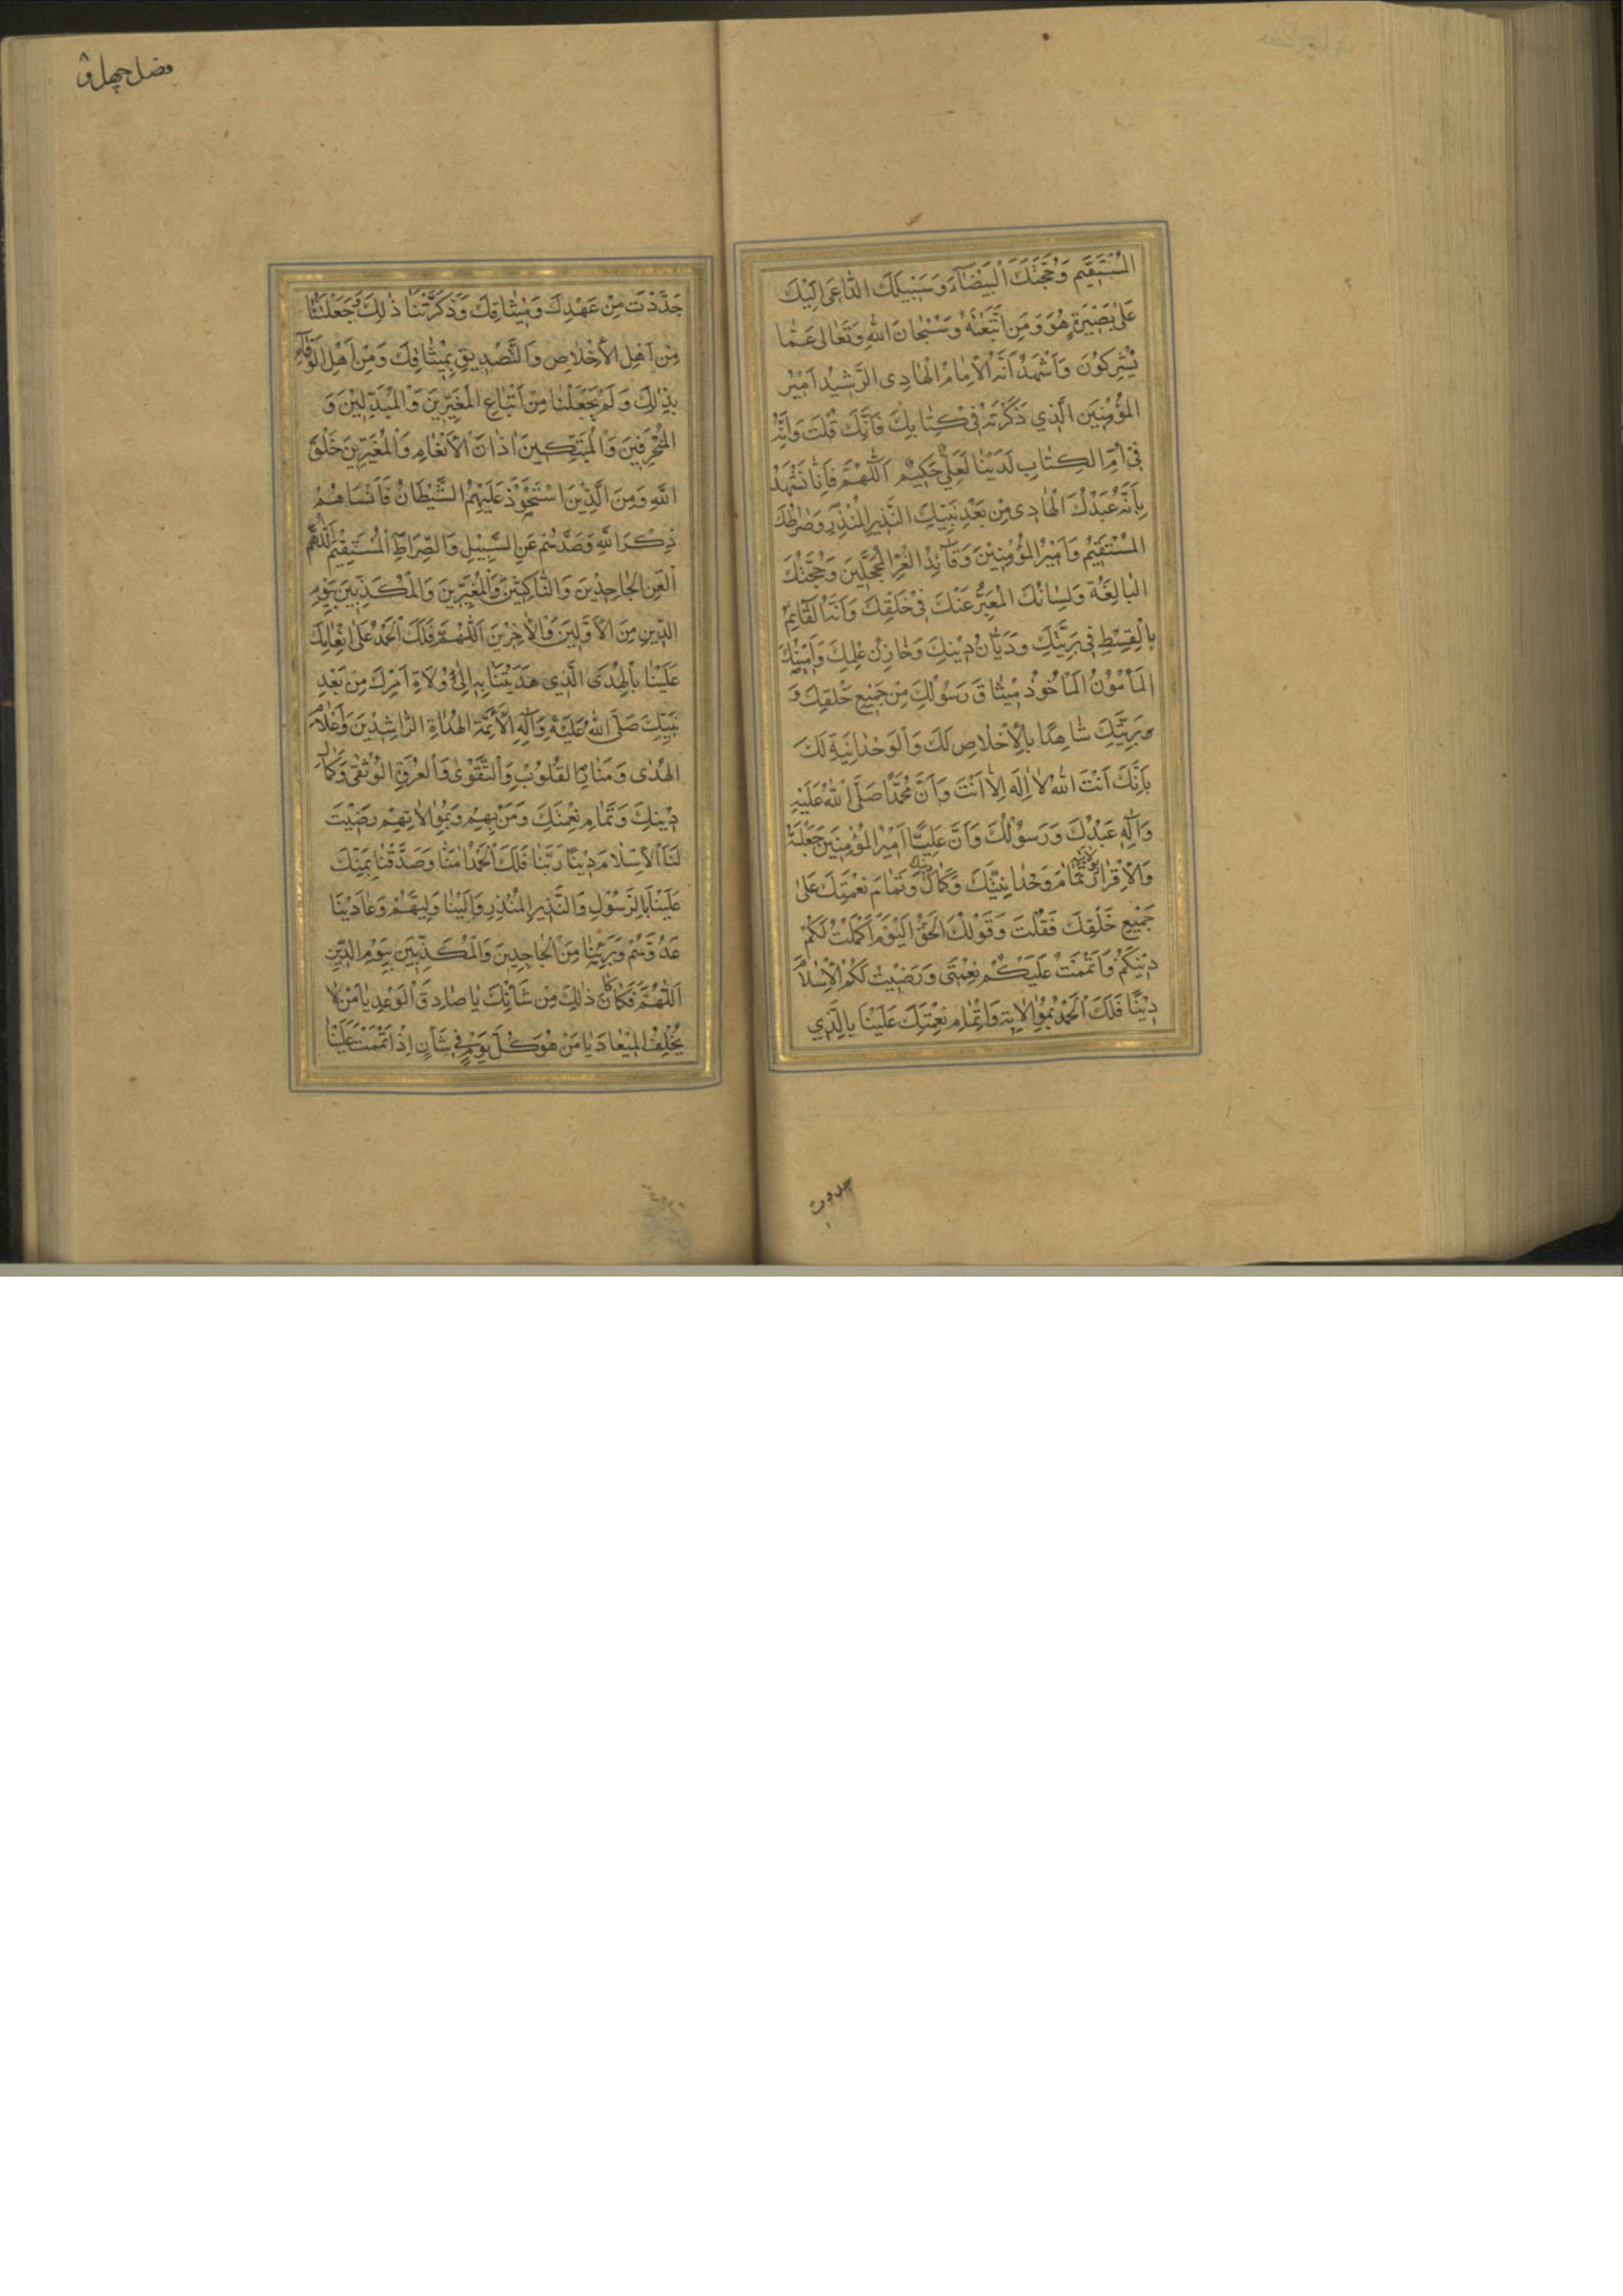 المُسْتَقِيمِ وَحُجَّتِكَ الْبَيْضَآءِ وَسَبِيلِكَ الدّاعِي اِلَيْكَ
عَلى بَصِيرَةٍ هُوَ وَمَنِ اتَّبَعَهُ وَسُبْحانَ اللهِ وَتَعالى عَمّا
يُشْرِكُونَ وَاَشْهَدُ اَنَّهُ الْاِمامُ الْهادِى الرَّشِيدُ اَمِيرُ
المُؤْمِنِينَ الَّذِي ذَكَرْتَهُ فِى كِتابِكَ فَاِنَّكَ قُلْتَ وَاِنَّهُ
فِى اُمِّ الكِتابِ لَدَيْنا لَعَلِيٌّ حَكِيمٌ اَللّهُمَّ فَاِنّا نَشْهَدُ
بِاَنَّهُ عَبْدُكَ الْهادِى مِنْ بَعْدِ نَبِيِّكَ النَّذِيرِ المُنْذِرِ وَصِراطُكَ
المُسْتَقِيمُ وَاَمِيرُ المُؤْمِنِينَ وَقآئِدُ الْغُرِّ الْمُحَجَّلِينَ وَحُجَّتُكَ
الْبالِغَةُ وَلِسانُكَ الْمُعَبِّرُ عَنْكَ فِى خَلْقِكَ وَاَنَّهُ الْقآئِمُ
بِالْقِسْطِ فِى بَرِيَّتِكَ وَدَيّانُ دِينِكَ وَخازِنُ عِلْمِكَ وَاَمِينُكَ
الْمَأْمُونُ الْمَأْخُوذُ مِيثاقَ رَسُولِكَ مِنْ جَمِيعِ خَلْقِكَ وَ
وَبَرِيَّتِكَ شاهِدًا بِالْاِخْلاصِ لَكَ وَالْوَحْدانِيَّةِ لَكَ
بِاَنَّكَ اَنْتَ اللهُ لا اِلَهَ اِلّا اَنْتَ وَاَنَّ مُحَمَّدًا صَلَّى اللهُ عَلَيْهِ
وَآلِهِ عَبْدُكَ وَرَسُولُكَ وَاَنَّ عَلِيًّا اَمِيرُ المُؤْمِنِينَ جَعَلْتَهُ
وَالْاِقْرارَ بِوِلايَتِهِ تَمامَ وَحْدانِيَّتِكَ وَكَمالَ دِينِكَ وَتَمامَ نِعْمَتِكَ عَلى
جَمِيعِ خَلْقِكَ فَقُلْتَ وَقَوْلُكَ الْحَقُّ اَلْيَوْمَ اَكْمَلْتُ لَكُمْ
دِينَكُمْ وَاَتْمَمْتُ عَلَيْكُمْ نِعْمَتِى وَرَضِيتُ لَكُمُ الْاِسْلامَ
دِينًا فَلَكَ الْحَمْدُ بِمُوالاتِهِ وَاِتْمامِ نِعْمَتِكَ عَلَيْنا بِالَّذِي
جَدَّدْتَ مِنْ عَهْدِكَ وَمِيثاقِكَ وَذَكَّرْتَنا ذلِكَ وَجَعَلْتَنا
مِنْ اَهْلِ الْاِخْلاصِ وَالتَّصْدِيقِ بِمِيثاقِكَ وَمِنْ اَهْلِ الْوَفآءِ
بِذلِكَ وَلَمْ تَجْعَلْنا مِنْ اَتْباعِ الْمُغَيِّرِينَ وَالْمُبَدِّلِينَ وَ
الْمُنْحَرِفِينَ وَالْمُبَتِّكِينَ اذانَ الْاَنْعامِ وَالْمُغَيِّرِينَ خَلْقَ
اللهِ وَمِنَ الَّذِينَ اسْتَحْوَذَ عَلَيْهِمُ الشَّيْطانُ فَاَنْساهُمْ
ذِكْرَ اللهِ وَصَدَّهُمْ عَنِ السَّبِيلِ وَالصِّراطِ الْمُسْتَقِيمِ اَللّهُمَّ
الْعَنِ الْجاحِدِينَ وَالنّاكِثِينَ وَالْمُغَيِّرِينَ وَالْمُكَذِّبِينَ بِيَوْمِ
الدِّينِ مِنَ الْاَوَّلِينَ وَالْاخِرِينَ اَللّهُمَّ فَلَكَ الْحَمْدُ عَلى اِنْعامِكَ
عَلَيْنا بِالْهُدَى الَّذِي هَدَيْتَنا بِهِ اِلى وُلاةِ اَمْرِكَ مِنْ بَعْدِ
نَبِيِّكَ صَلَّى اللهُ عَلَيْهِ وَآلِهِ الْاَئِمَّةِ الْهُداةِ الرّاشِدِينَ وَاَعْلامِ
الْهُدى وَمَنارِ القُلُوبِ وَالتَّقْوى وَالْعُرْوَةِ الْوُثْقى وَكَمالِ
دِينِكَ وَتَمامِ نِعْمَتِكَ وَمَنْ بِهِمْ وَبِمُوالاتِهِمْ رَضِيتَ
لَنَا الْاِسْلامَ دِينًا رَبَّنا فَلَكَ الْحَمْدُ امَنّا وَصَدَّقْنا بِمَنِّكَ
عَلَيْنا بِالرَّسُولِ النَّذِيرِ الْمُنْذِرِ وَالَيْنا وَلِيَّهُمْ وَعادَيْنا
عَدُوَّهُمْ وَبَرِئْنا مِنَ الْجاحِدِينَ وَالْمُكَذِّبِينَ بِيَوْمِ الدِّينِ
اَللّهُمَّ فَكَما كانَ ذلِكَ مِنْ شَأْنِكَ يا صادِقَ الْوَعْدِ يا مَنْ لا
يُخْلِفُ الْمِيعادَ يا مَنْ هُوَ كُلَّ يَوْمٍ فِى شَأْنٍ اِذْ اَتْمَمْتَ عَلَيْنا